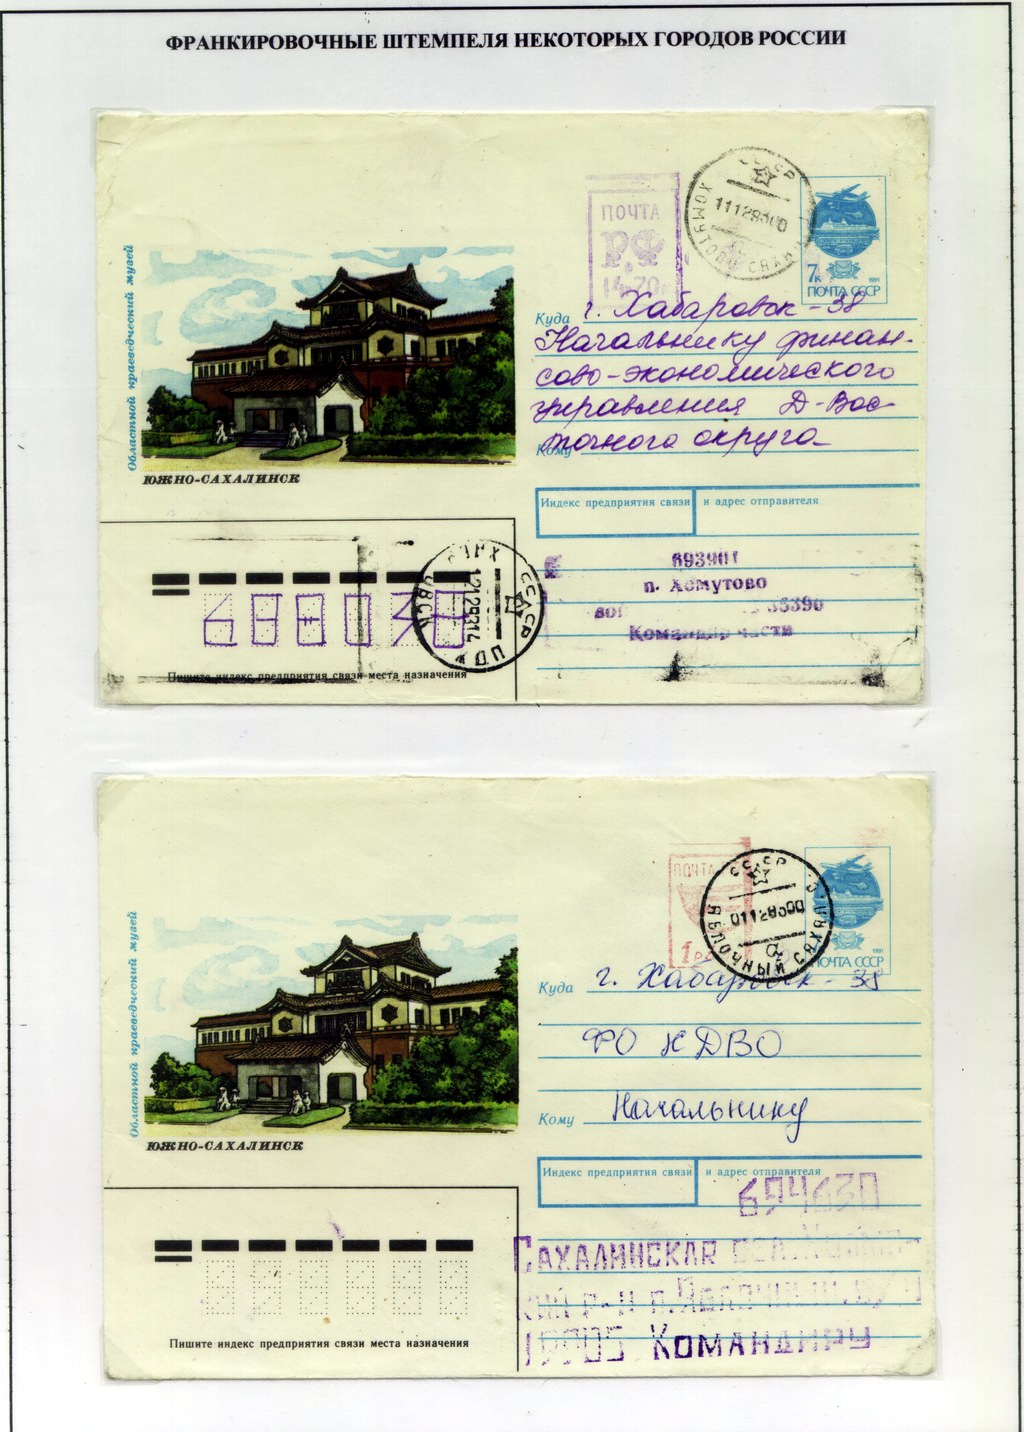 ФРАНКИРОВОЧНЫЕ ШТЕМПЕЛЯ НЕКОТОРЫХ ГОРОДОВ РОССИИ
Областной краеведческий музей
ЮЖНО-САХАЛИНСК
ПОЧТА
РФ
14-20
СССР
ХОМУТОВО САХАЛ
7к
1991
ПОЧТА СССР
Куда г. Хабаровск - 38
Начальнику финан-
сово-экономического
управления Д-Вос-
точного округа
Кому
Индекс предприятия связи и адрес отправителя
693901
п. Хомутово
35390
Командир части
680038
СССР
Пишите индекс предприятия связи места назначения
Областной краеведческий музей
ЮЖНО-САХАЛИНСК
ПОЧТА
1р
СССР
01129300
ЯБЛОЧНЫЙ САХАЛ
1991
ПОЧТА СССР
Куда г. Хабаровск - 38
ФО КДВО
Кому Начальнику
Индекс предприятия связи и адрес отправителя
694630
САХАЛИНСКАЯ ОБЛ. ХОЛМС-
КИЙ Р-Н П. ЯБЛОЧНЫЙ,
КОМАНДИРУ
Пишите индекс предприятия связи места назначения